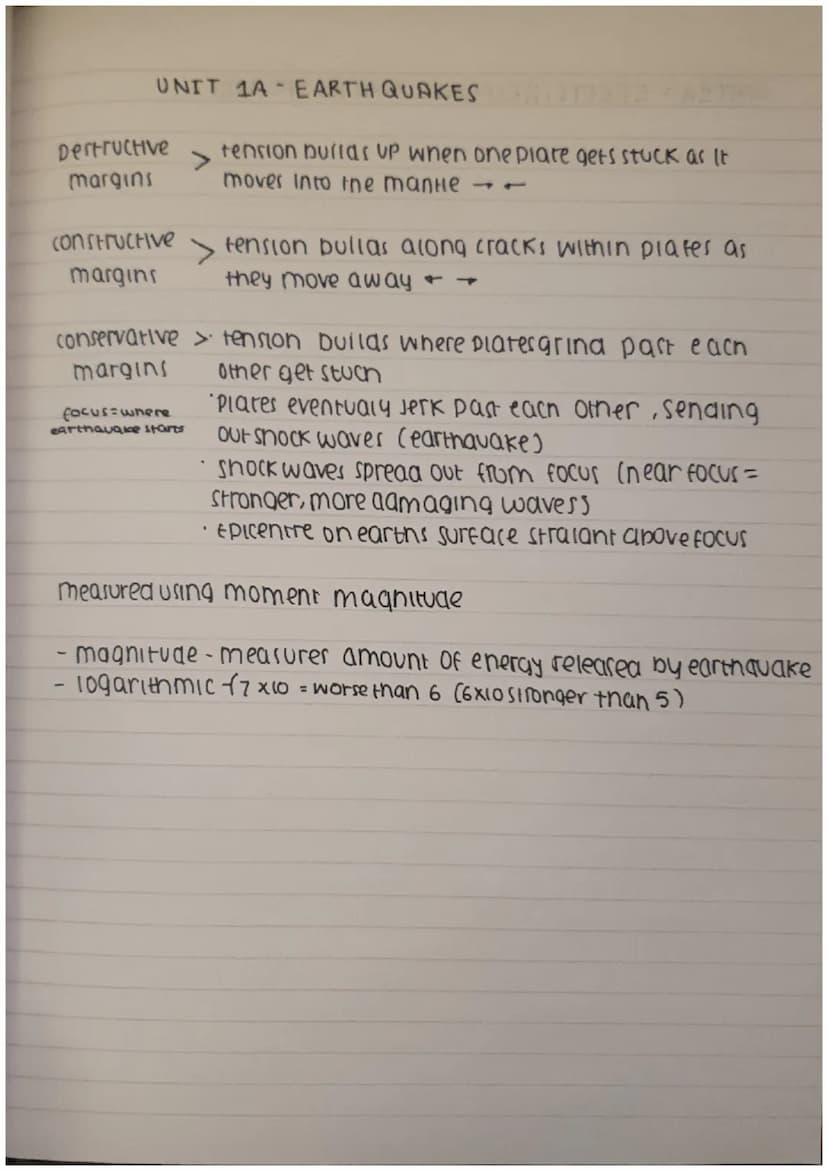 UNIT 1A - EARTHQUAKES
Destructive > tension builds up when one plate gets stuck as it
margins moves into the mantle → ←
constructive > tension builds along cracks within plates as
margins they move away ← →
conservative > · tension builds where plates grind past each
margins other get stuck
focus = where · plates eventualy jerk past each other, sending
earthquake starts out shock waves (earthquake)
· shock waves spread out from focus (near focus =
stronger, more damaging waves)
· Epicentre on earths surface straight above focus
measured using moment magnitude
- magnitude - measures amount of energy released by earthquake
- logarithmic - (7 x10 = worse than 6 (6x10 stronger than 5)